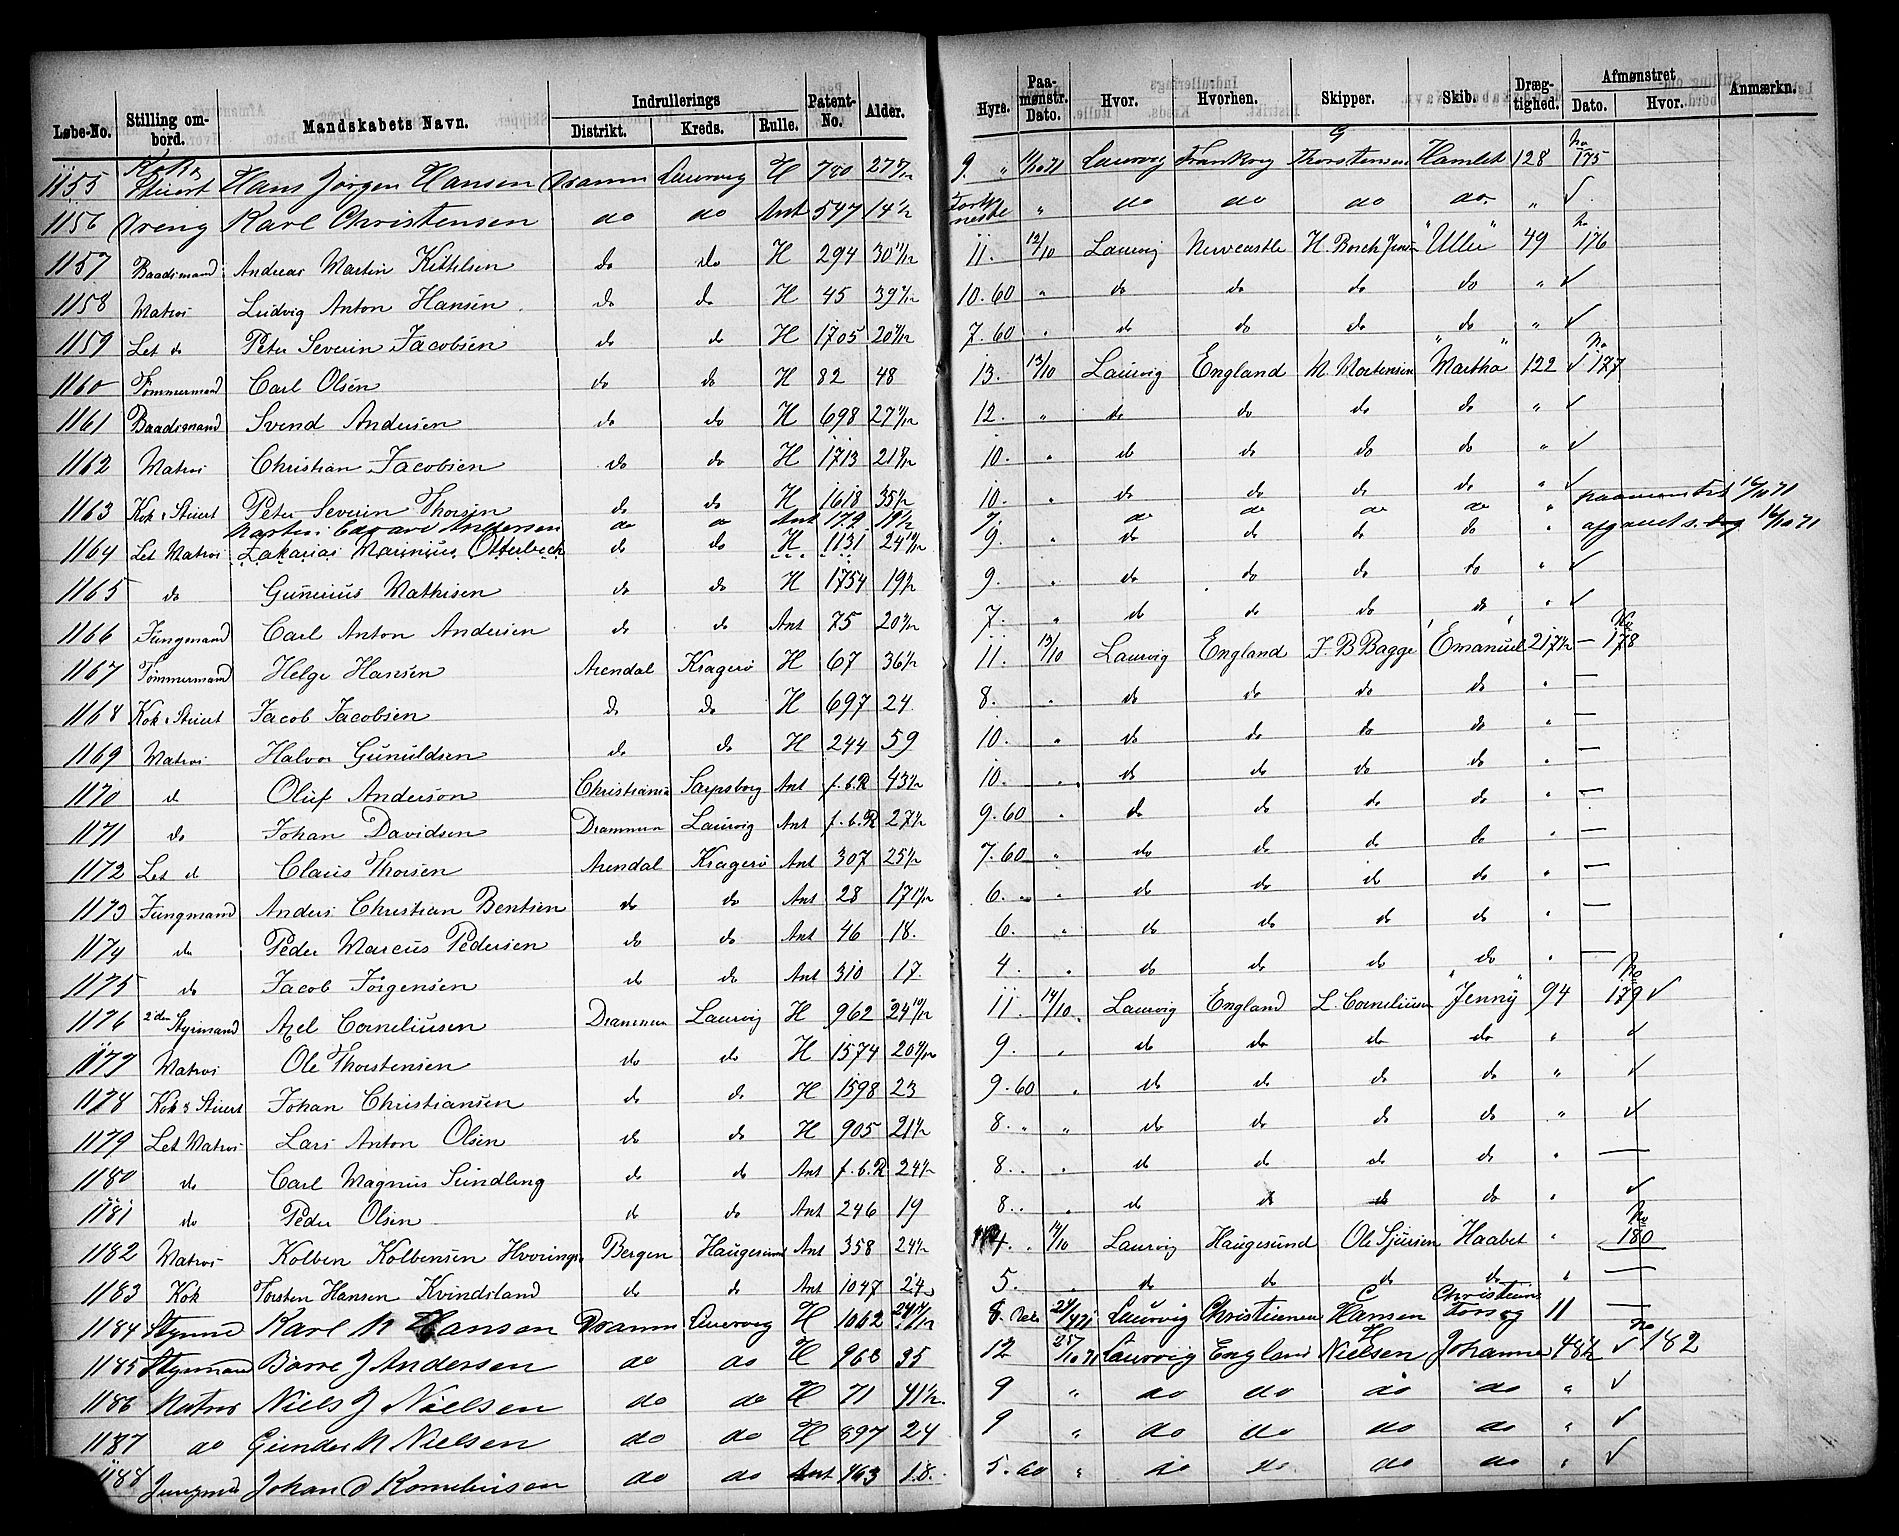 Løbe-No. Stilling ombord. Mandskabets Navn. Indrullerings Distrikt. Kreds. Rulle. Patent-No. Alder. Hyre. Paamønstr. Dato. Hvor. Hvorhen. Skipper. Skib. Drægtighed. Afmønstret Dato. Hvor. Anmærkn.
1155 Kok & Stuert Hans Jørgen Hansen Dramm Laurvig H 780 27 9. " 11/10 71 Laurvig Frankrig G Thorstensen Hamlet 128 No 175
1156 Dreng Karl Christensen do do Ant 547 14½ " do do do do " ✓
1157 Baadsmand Andreas Martin Kittelsen do do H 294 30 11. 12/10 Laurvig Newcastle H. Bosch Jensen "Ulle" 49 No 176
1158 Matros Ludvig Anton Hansen do do H 45 39 10.60 " do do do do " ✓
1159 Let do Peter Severin Jacobsen do do H 1705 20 7.60 " do do do do " ✓
1160 Tømmermand Carl Olsen do do H 82 48 13. 13/10 Laurvig England M. Mortensen "Martha" 122 ✓ No 177
1161 Baadsmand Svend Andersen do do H 698 27 12. " do do do do " ✓
1162 Matros Christian Jacobsen do do H 1713 21 10. " do do do do " ✓
1163 Kok & Stuert Peter Severin Thorsen do do H 1618 35½ 10. " do do do do " ✓
Martin Edvard Andersen do do Ant 179 19½ 7. do do do do " paamønstret 16/10 71
1164 Let Matros Zakarias Marinius Otterbeck do do H 1131 24 9. " do do do do " afgaaet s. dag 16/10 71
1165 do Gunerius Mathisen do do H 1754 19½ 9. " do do do do " ✓
1166 Jungmand Carl Anton Andersen do do Ant 75 20 7. " do do do do " ✓
1167 Tømmermand Helge Hansen Arendal Kragerø H 67 36½ 11. 13/10 Laurvig England J. B Bagge "Emanuel" 217½ — No 178
1168 Kok & Stuert Jacob Jacobsen do do H 697 24. 8. " do do do do " —
1169 Matros Halvor Gunuldsen do do H 244 59 10. " do do do do " —
1170 do Oluf Anderson Christiania Sarpsborg Ant f.b.R 43½ 10. " do do do do " —
1171 do Johan Davidsen Drammen Laurvig Ant f.b.R 27½ 9.60 " do do do do " —
1172 Let do Claus Thorsen Arendal Kragerø Ant 307 25½ 7.60 " do do do do " —
1173 Jungmand Anders Christian Bentsen do do Ant 28 17 6. " do do do do " —
1174 do Peder Marcus Pedersen do do Ant 46 18. 6. " do do do do " —
1175 do Jacob Jørgensen do do Ant 310 17 4. " do do do do " —
1176 2den Styrmand Axel Corneliusen Drammen Laurvig H 962 24 10/12 11. 14/10 Laurvig England L. Corneliusen "Jenny" 94 No 179 ✓
1177 Matros Ole Thorstensen do do H 1574 20 9. " do do do do " ✓
1178 Kok & Stuert Johan Christiansen do do H 1598 23 9.60 " do do do do " ✓
1179 Let Matros Lars Anton Olsen do do H 905 21½ 8. " " do do do do " ✓
1180 do Carl Magnus Sundling do do Ant f.b.R 24½ 8. " do do do do " —
1181 do Peder Olsen do do Ant 246 19 8. " do do do do " ✓
1182 Matros Kolben Kolbensen Hvorings Bergen Haugesund Ant 358 24½ 4. 14/10 Laurvig Haugesund Ole Sjursen Haabet " No 180
1183 Kok Torsten Hansen Kvindsland do do Ant 1047 24 5. " do do do do " —
1184 Styrmd Karl M Hansen Dramm Laurvig H 1062 24 8. Laurvig C Hansen Christiane 11 —
1185 Styrmand Børre J Andersen do do H 968 35 12 25/10 71 Laurvig England H Nielsen Johanne 48½ ✓ No 182
1186 Matros Niels J Nielsen do do H 71 41½ 9 " do do do do " ✓
1187 do Gunder M Nielsen do do H 897 24 9 " do do do do " ✓
1188 Jungmd Johan O Kornelinsen do do Ant 463 18. 5.60 " do do do do " ✓